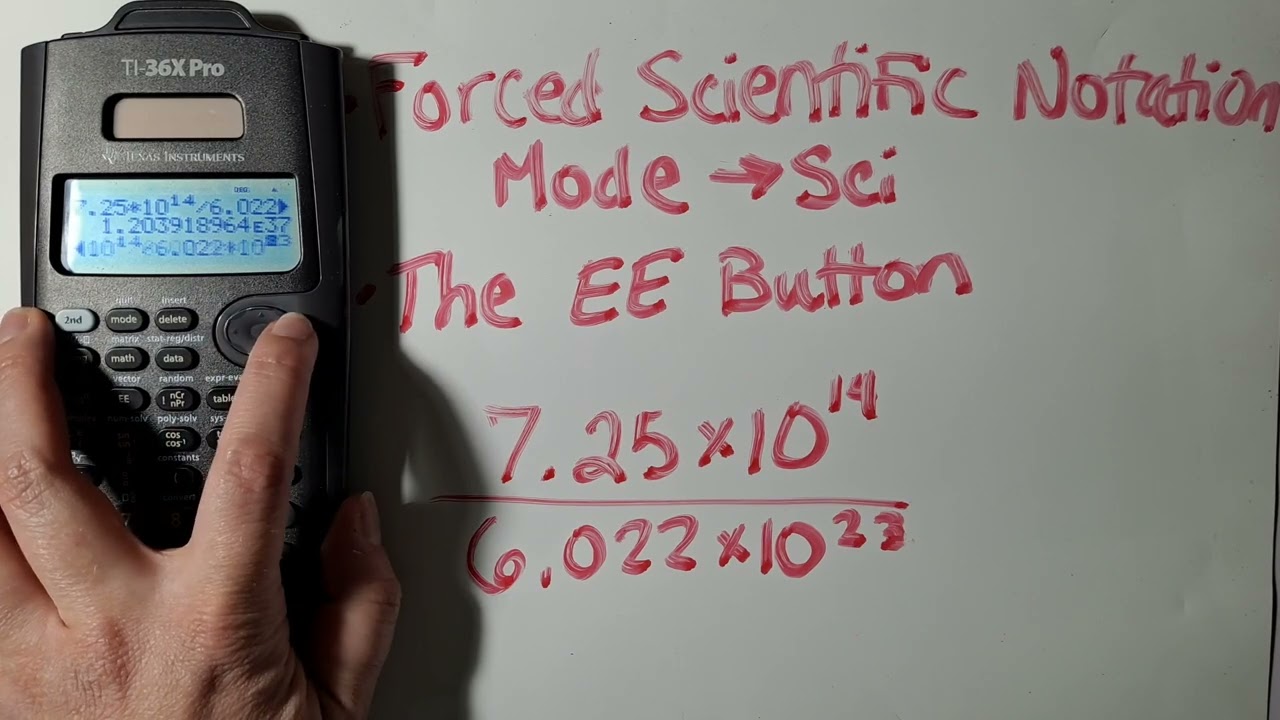 TI-36X Pro
TEXAS INSTRUMENTS
DEG
7.25*10¹⁴/6.022▶
1.203918964E37
◀10¹⁴/6.022*10²³
quit insert
2nd mode delete
matrix stat-reg/distr
math data
vector random expr-eva
EE ! nCr nPr table
num-solv poly-solv sys-
cos cos⁻¹
constants
convert
7 8
• Forced Scientific Notation
Mode → Sci
• The EE Button
7.25 × 10¹⁴
6.022 × 10²³